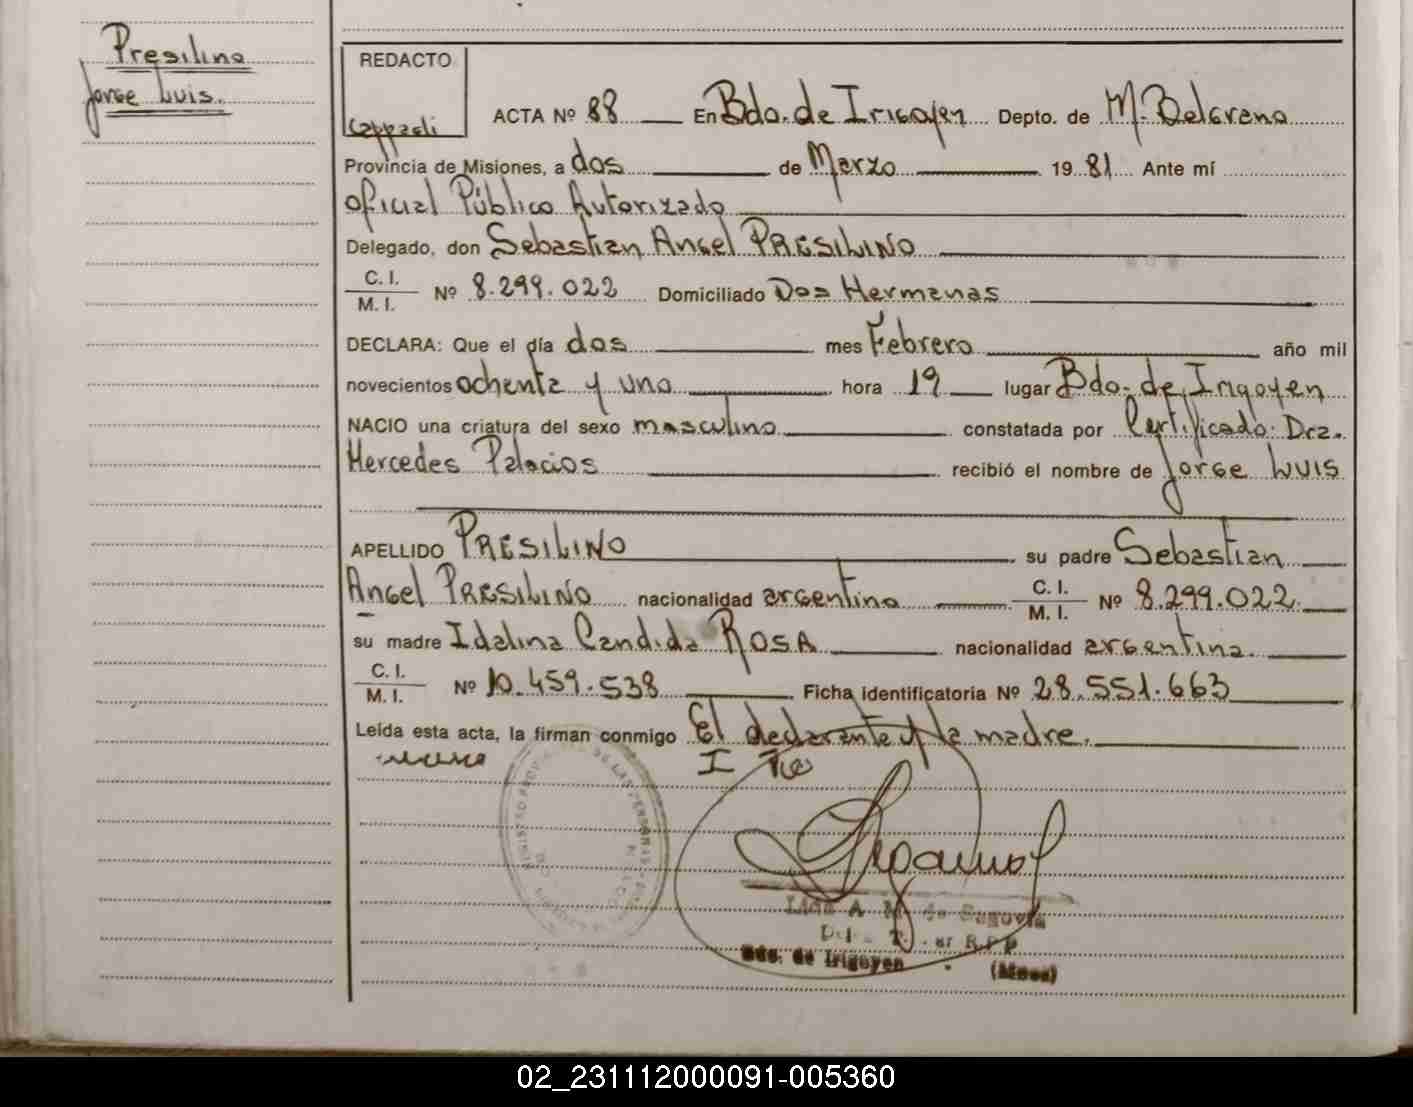 Presilino
Jorge Luis.
REDACTO
ACTA Nº 88 En Bdo. de Irigoyen Depto. de M. Belgrano
Provincia de Misiones, a dos de Marzo 1981 Ante mí
Oficial Público Autorizado
Delegado, don Sebastian Angel PRESILINO
C. I.
M. I. Nº 8.299.022 Domiciliado Dos Hermanas
DECLARA: Que el día dos mes Febrero año mil
novecientos ochenta y uno hora 19 lugar Bdo. de Irigoyen
NACIO una criatura del sexo masculino constatada por Certificado: Dra.
Mercedes Palacios recibió el nombre de Jorge Luis
APELLIDO PRESILINO su padre Sebastian
Angel PRESILINO nacionalidad argentino C. I.
M. I. Nº 8.299.022
su madre Idalina Candida ROSA nacionalidad argentina.
C. I.
M. I. Nº 10.459.538 Ficha identificatoria Nº 28.551.663
Leída esta acta, la firman conmigo El declarante y la madre.
Bdo. de Irigoyen (Mnes)
02_231112000091-005360